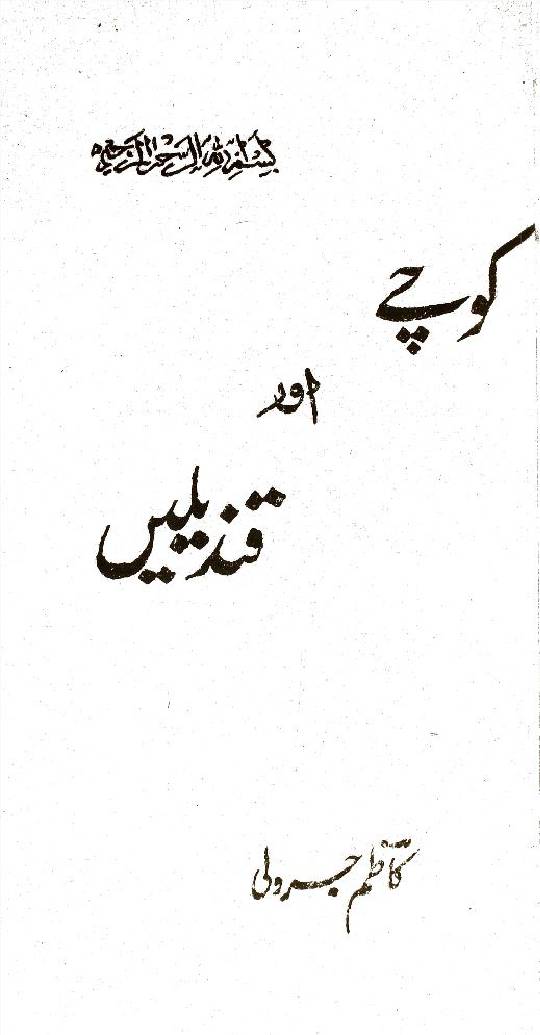 بسم اللہ الرحمن الرحیم
کوچے
اور
قندیلیں
کاظم جرولی